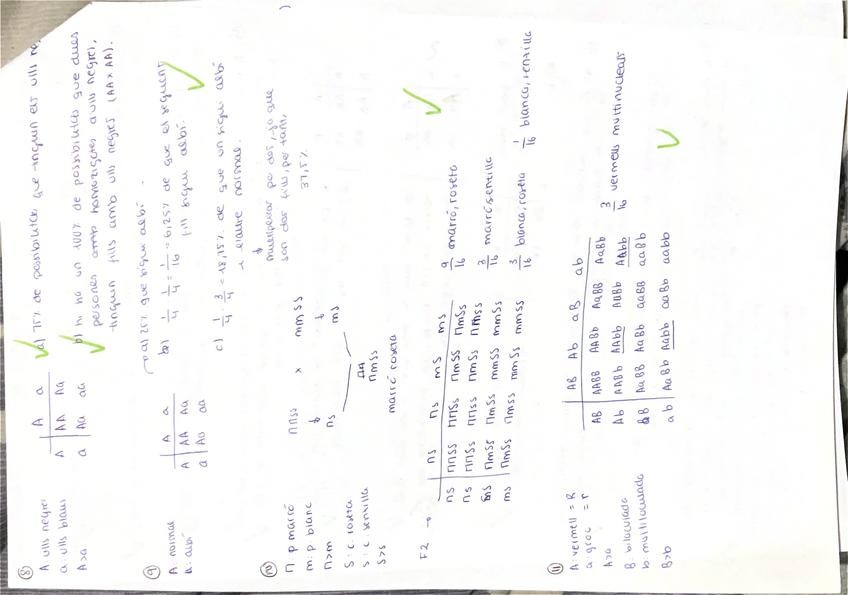 ⑧
A ulls negres
a ulls blaus
A>a
A a
A AA Aa
a Aa aa
a) 75% de possibilitats que tinguin els ulls ne
b) hi ha un 100% de possibilitats que dues
persones amb homozigotes a ulls negres,
tinguin fills amb ulls negres (AA x AA).
⑨
A: normal
a: albí
A a
A AA Aa
a Aa aa
a) 25% que sigui albí.
b) 1/4 · 1/4 = 1/16 = 6,25% de que el següent
fill sigui albí.
c) 1/4 · 3/4 = 18,75% de que un sigui albí
i l'altre normal.
↓
multiplicar per dos, ja que
són dos fills, per tant,
37,5%
⑩
M: p marró
m: p blanc
M>m
S: c. roseta
s: c. senzilla
S>s
MMss x mmSS
↓ ↓
Ms mS
MmSs
marró roseta
F2 →
9/16 marró, roseta
3/16 marró, senzilla
3/16 blanca, roseta
1/16 blanca, senzilla
⑪
A: vermell = R
a: groc = r
A>a
B: biloculada
b: multiloculada
B>b
AB Ab aB ab
AB AABB AABb AaBB AaBb
Ab AABb AAbb AaBb Aabb
aB AaBB AaBb aaBB aaBb
ab AaBb Aabb aaBb aabb
3/16 vermells